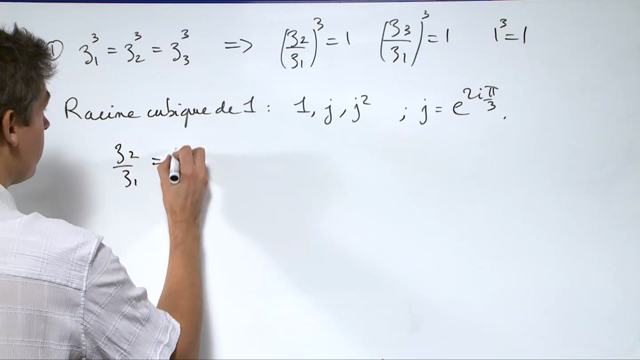 1) z₁³ = z₂³ = z₃³ => (z₂/z₁)³ = 1 (z₃/z₁)³ = 1 1³ = 1
Racine cubique de 1 : 1, j, j² ; j = e^{2iπ/3}.
z₂/z₁ =